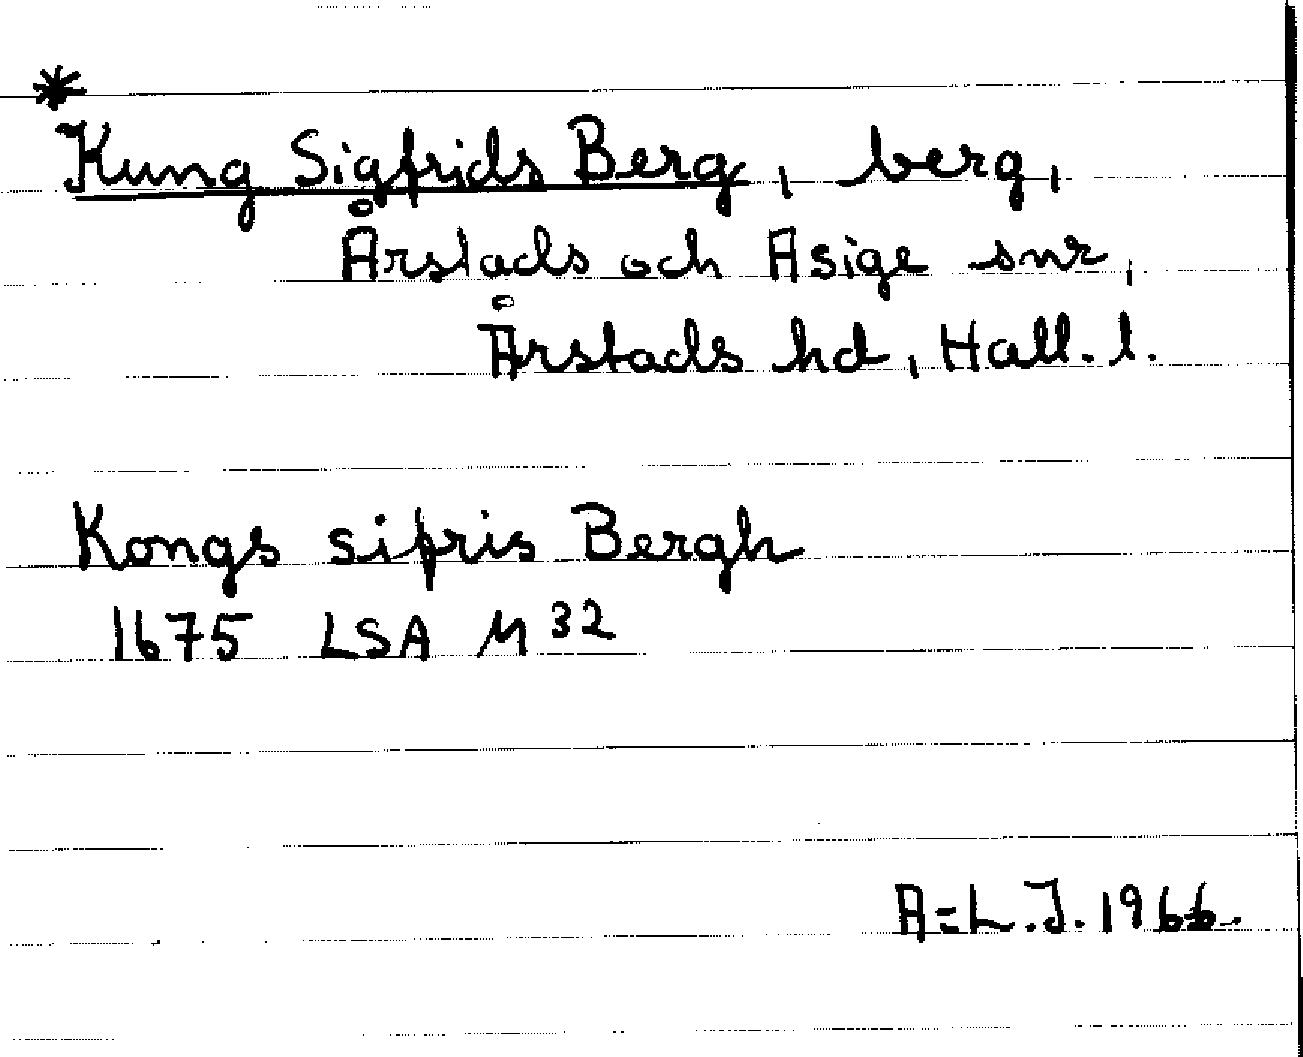 *
Kung Sigfrids Berg, berg,
Årstads och Asige snr,
Årstads hd, Hall. l.
Kongs sifris Bergh
1675 LSA M 32
A=L.J. 1966.